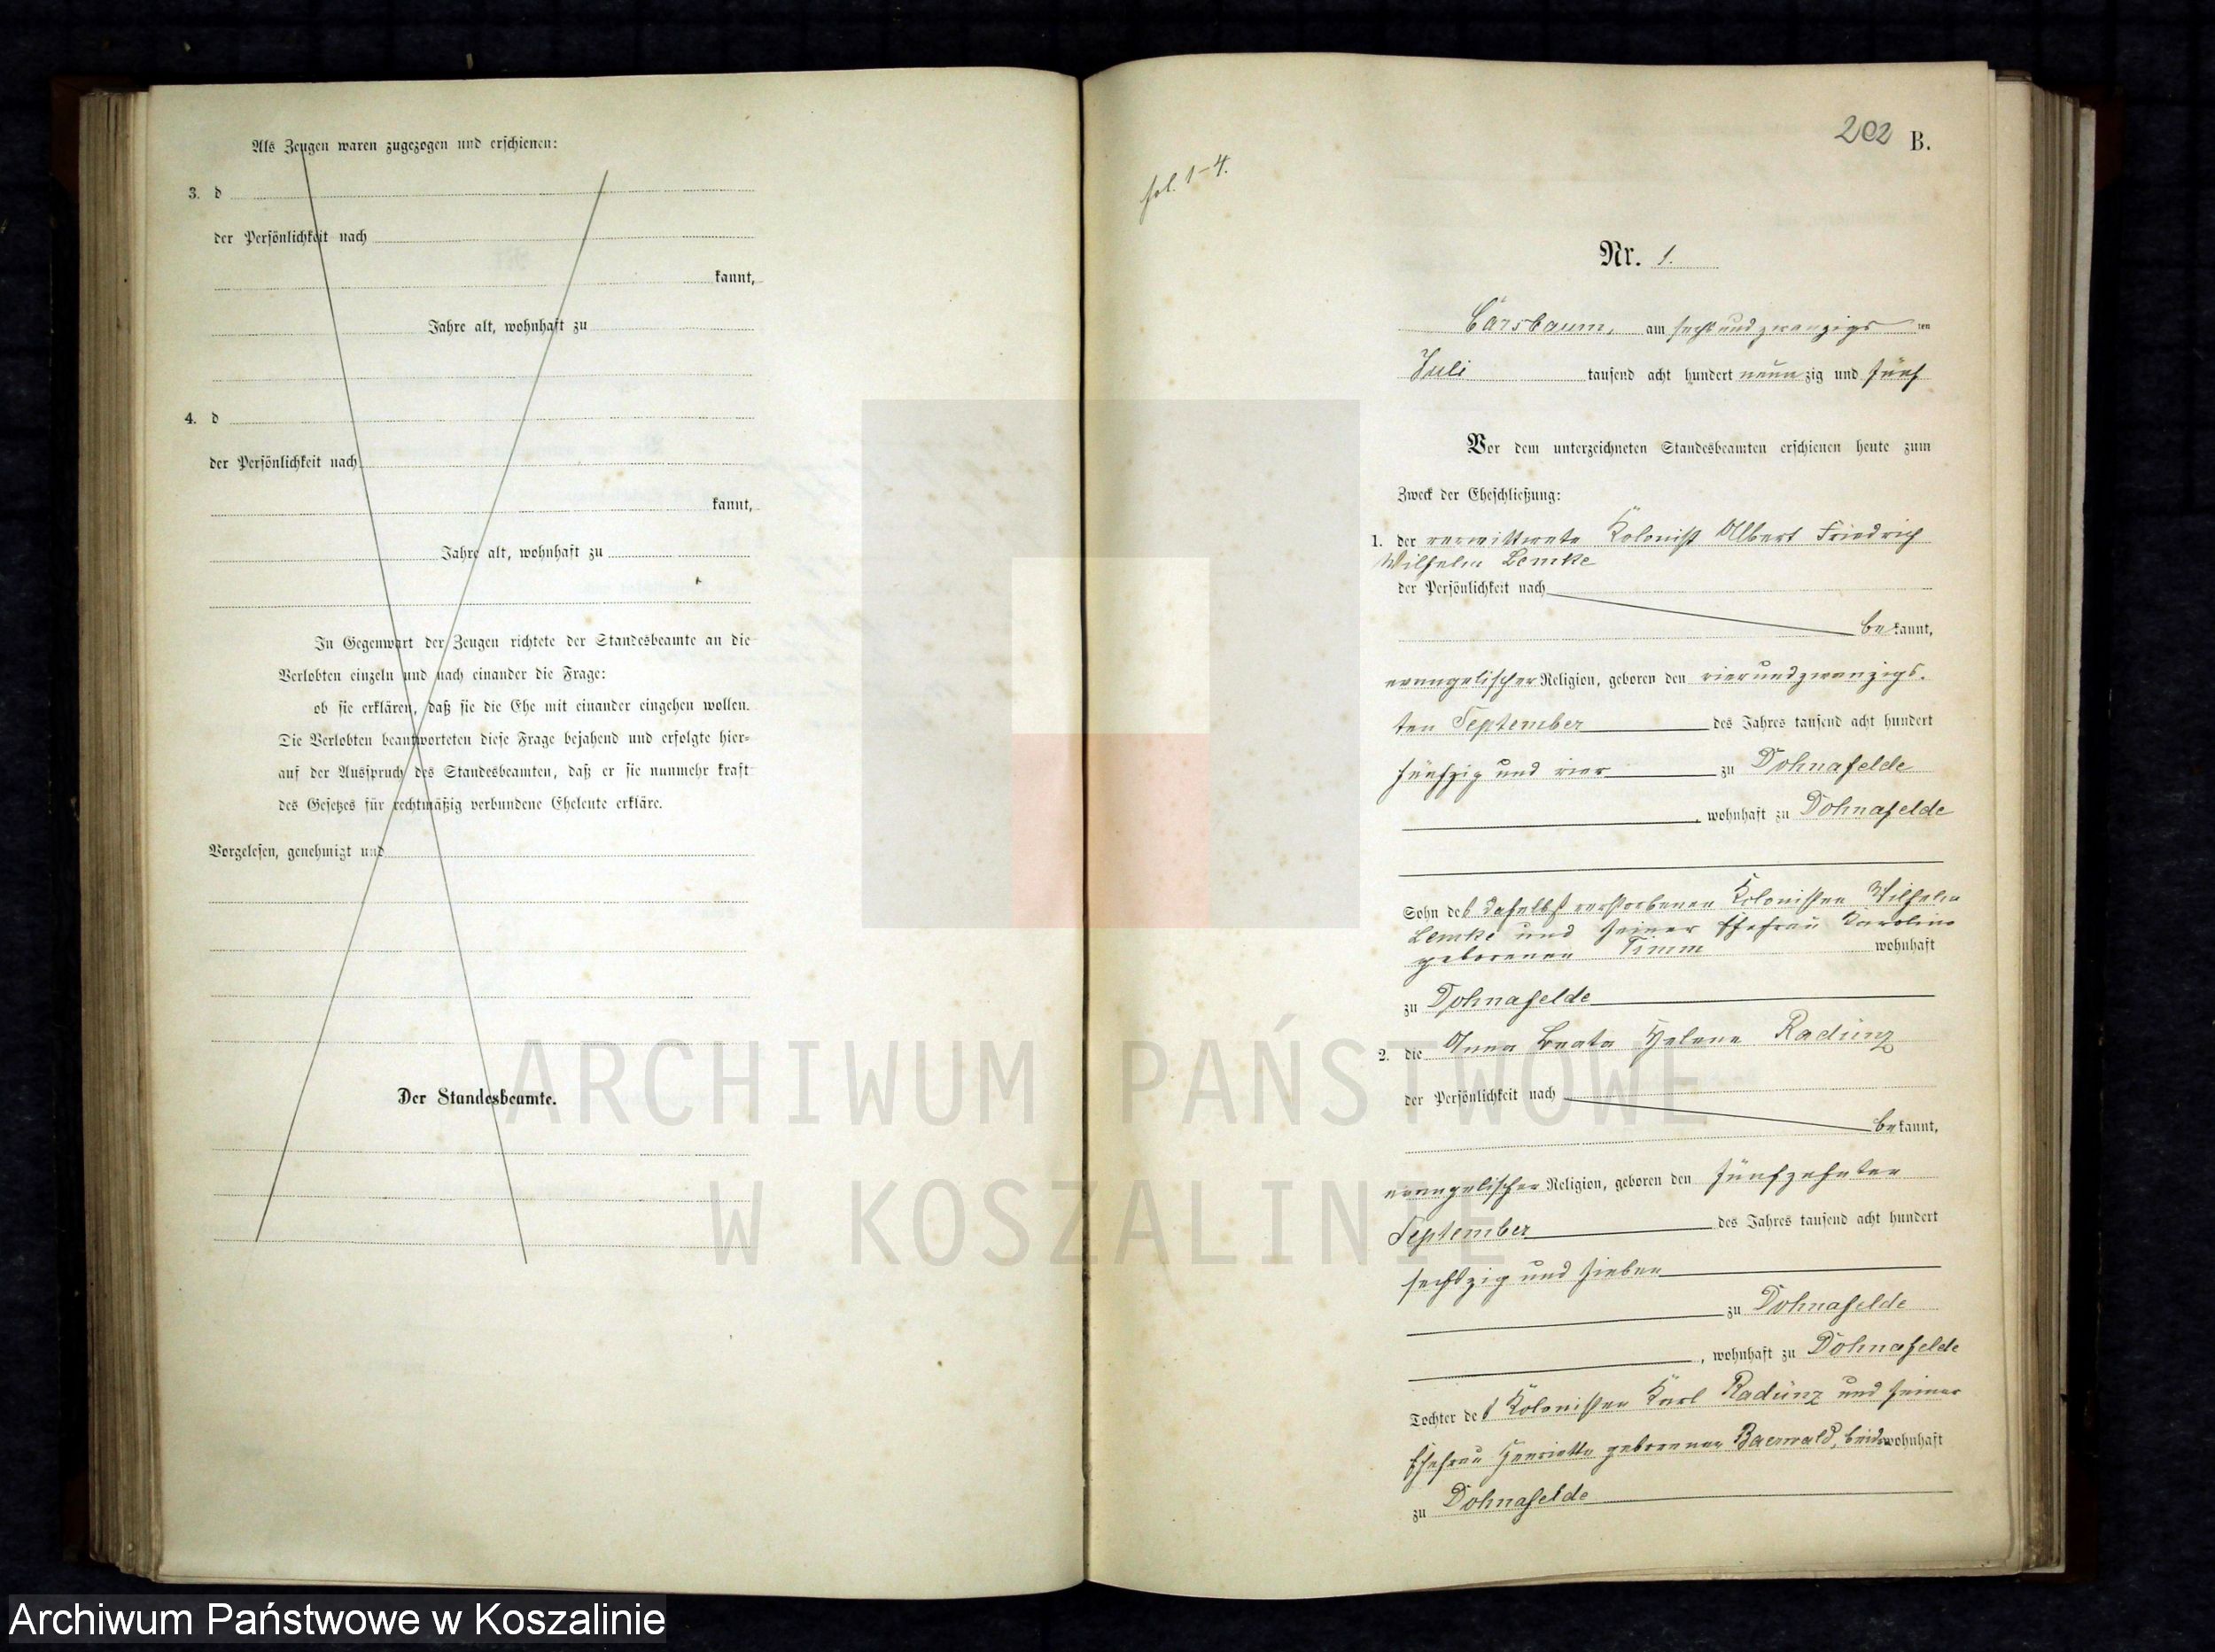 Als Zeugen waren zugezogen und erschienen:
3. d
der Persönlichkeit nach
kannt,
Jahre alt, wohnhaft zu
4. d
der Persönlichkeit nach
kannt,
Jahre alt, wohnhaft zu
In Gegenwart der Zeugen richtete der Standesbeamte an die
Verlobten einzeln und nach einander die Frage:
ob sie erklären, daß sie die Ehe mit einander eingehen wollen.
Die Verlobten beantworteten diese Frage bejahend und erfolgte hier-
auf der Ausspruch des Standesbeamten, daß er sie nunmehr kraft
des Gesetzes für rechtmäßig verbundene Eheleute erkläre.
Vorgelesen, genehmigt und
Der Standesbeamte.
202 B.
fol. 1-4.
Nr. 1.
Carsbaum, am sechsundzwanzigs ten
Juli tausend acht hundert neunzig und fünf
Vor dem unterzeichneten Standesbeamten erschienen heute zum
Zweck der Eheschließung:
1. der verwittwete Kolonist Albert Friedrich
Wilhelm Lemke
der Persönlichkeit nach
bekannt,
evangelischer Religion, geboren den vierundzwanzigs-
ten September des Jahres tausend acht hundert
fünfzig und vier zu Dohnafelde
, wohnhaft zu Dohnafelde
Sohn des daselbst verstorbenen Kolonisten Wilhelm
Lemke und seiner Ehefrau Karoline
geborenen Timm wohnhaft
zu Dohnafelde
2. die Anna Beata Helene Radünz
der Persönlichkeit nach
bekannt,
evangelischer Religion, geboren den fünfzehnten
September des Jahres tausend acht hundert
sechszig und sieben
zu Dohnafelde
, wohnhaft zu Dohnafelde
Tochter des Kolonisten Karl Radünz und seiner
Ehefrau Henriette geborenen Baerwald, beide wohnhaft
zu Dohnafelde
ARCHIWUM PAŃSTWOWE
W KOSZALINIE
Archiwum Państwowe w Koszalinie